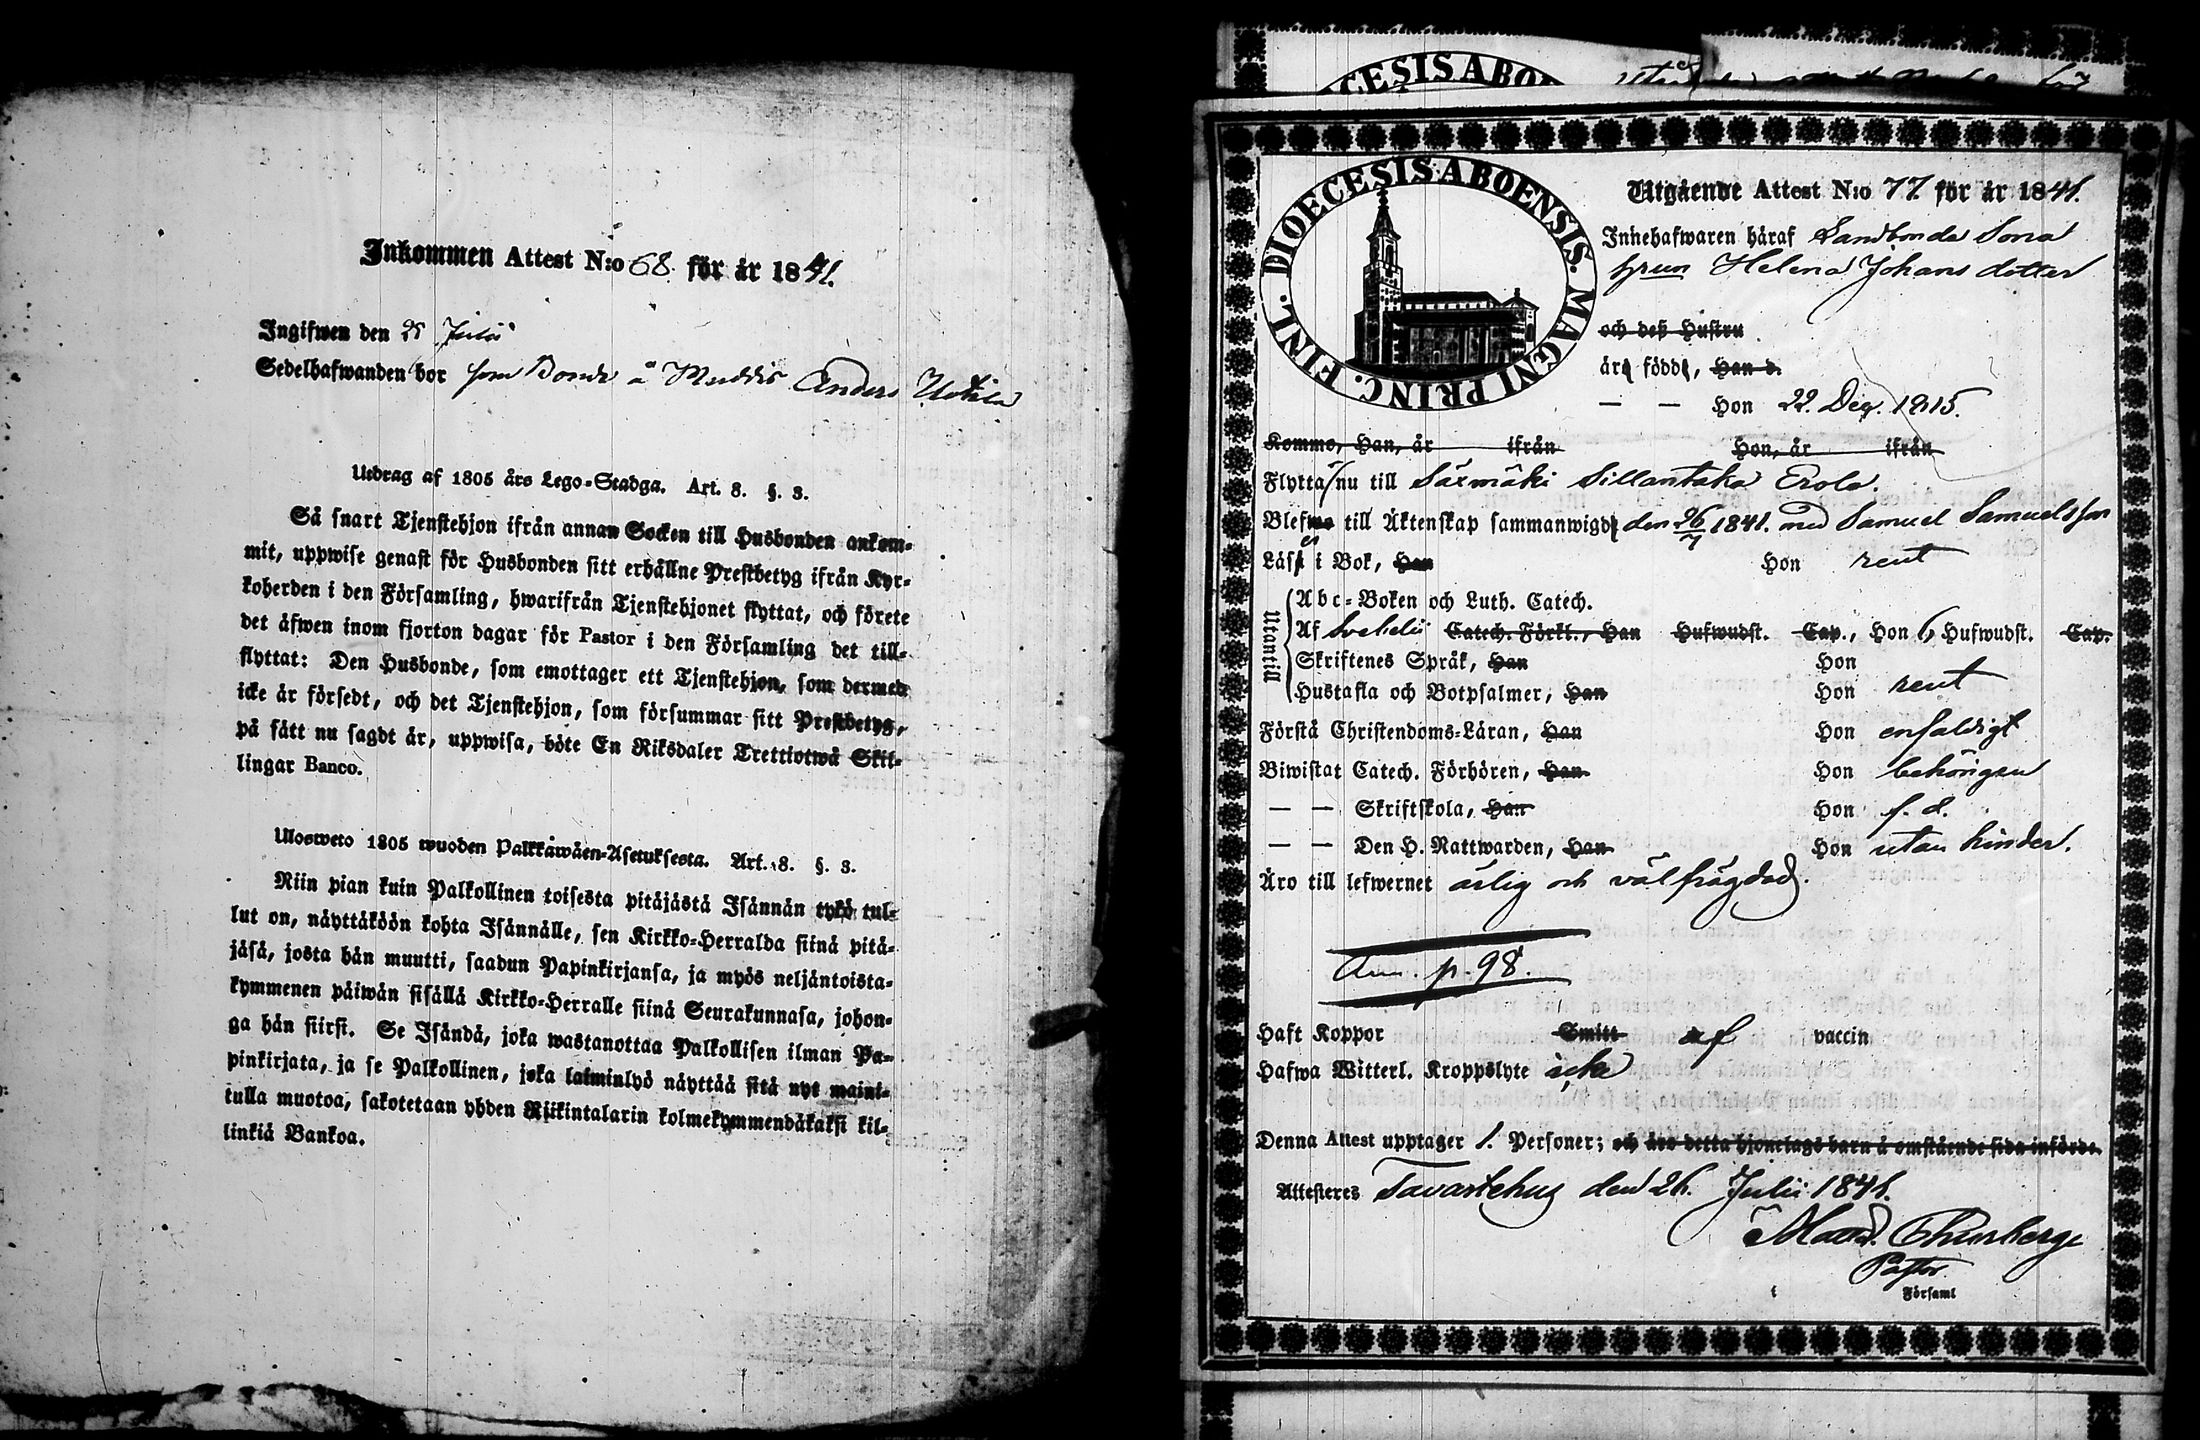 Inkommen Attest N:o 68. för år 1841.
Ingifwen den Julii
Sedelhafwanden bor som Bonde å Anders
Utdrag af 1805 års Lego-Stadga. Art. 8. §. 3.
Så snart Tjenstehjon ifrån annan Socken till Husbonden ankom-
mit, uppwise genast för Husbonden sitt erhållne Prestbetyg ifrån Kyr-
koherden i den Församling, hwarifrån Tjenstehjonet flyttat, och förete
det äfwen inom fjorton dagar för Pastor i den Församling det till-
flyttat: Den Husbonde, som emottager ett Tjenstehjon, som dermed
icke är försedt, och det Tjenstehjon, som försummar sitt Prestbetyg,
på sätt nu sagdt är, uppwisa, böte En Riksdaler Trettiotwå Skil-
lingar Banco.
Ulosweto 1805 wuoden Palkkawäen-Asetuksesta. Art. 8. §. 3.
Niin pian kuin Palkollinen toisesta pitäjästä Isännän tykö tul-
lut on, näyttäköön kohta Isännälle, sen Kirkko-Herralda siinä pitä-
jäsä, josta hän muutti, saadun Papinkirjansa, ja myös neljäntoista-
kymmenen päiwän sisällä Kirkko-Herralle siinä Seurakunnasa, johon-
ga hän siirsi. Se Isändä, joka wastanottaa Palkollisen ilman Pa-
pinkirjata, ja se Palkollinen, joka laiminlyö näyttää sitä nyt maini-
tulla muotoa, sakotetaan yhden Riikintalarin kolmekymmendäkaksi kil-
linkiä Bankoa.
DIOECESIS ABO
DIOECESIS ABOENSIS. MAGNI PRINC. FINL.
Utgående Attest N:o 77. för år 1841.
Innehafwaren häraf Landbonde Sona
hrun Helena Johans dotter
och deß Hustru
äro födde, Han d.
— — Hon 22. Dec. 1815.
Kommo, Han, år ifrån Hon, år ifrån
Flytta nu till Säxmäki Sillantaka Erola.
Blefwo till Äktenskap sammanwigde den 26/7 1841. med Samuel Samuelsson
Läsa i Bok, Han Hon rent
Utantill
Abc-Boken och Luth. Catech.
Af Svebelii Catech. Förkl., Han Hufwudst. Cap., Hon 6 Hufwudst. Cap.
Skriftenes Språk, Han Hon
Hustafla och Botpsalmer, Han Hon rent
Förstå Christendoms-Läran, Han Hon enfaldigt
Biwistat Catech. Förhören, Han Hon behörigen
— — Skriftskola, Han Hon f. d.
— — Den H. Nattwarden, Han Hon utan hinder.
Äro till lefwernet ärlig och välfrägdad.
p. 98.
Haft Koppor Smitt af vaccin
Hafwa Witterl. Kroppslyte icke
Denna Attest upptager 1. Personer; och äro detta hjonelags barn å omstående sida införde.
Attesteres Tavastehus den 26. Julii 1841.
Thunberg
Pastor.
Församl